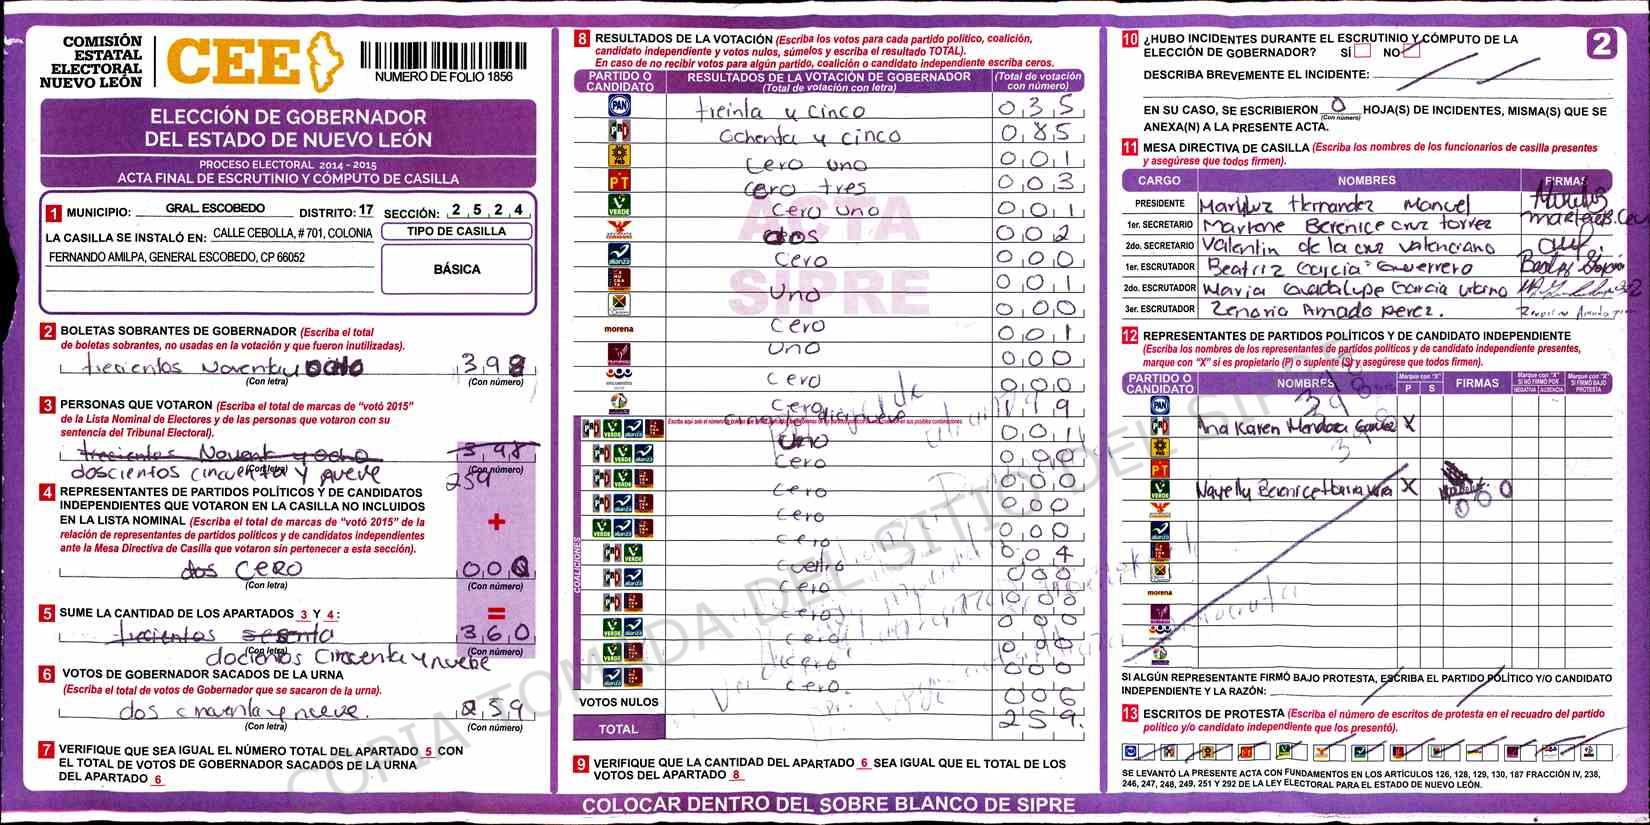 COMISIÓN
ESTATAL
ELECTORAL
NUEVO LEÓN
CEE
NUMERO DE FOLIO 1856
ELECCIÓN DE GOBERNADOR
DEL ESTADO DE NUEVO LEÓN
PROCESO ELECTORAL 2014 - 2015
ACTA FINAL DE ESCRUTINIO Y CÓMPUTO DE CASILLA
1 MUNICIPIO: GRAL. ESCOBEDO DISTRITO: 17 SECCIÓN: 2 5 2 4
LA CASILLA SE INSTALÓ EN: CALLE CEBOLLA, # 701, COLONIA
FERNANDO AMILPA, GENERAL ESCOBEDO, CP 66052
TIPO DE CASILLA
BÁSICA
2 BOLETAS SOBRANTES DE GOBERNADOR (Escriba el total
de boletas sobrantes, no usadas en la votación y que fueron inutilizadas).
trecientos Noventa y ocho 398
(Con letra) (Con número)
3 PERSONAS QUE VOTARON (Escriba el total de marcas de “votó 2015”
de la Lista Nominal de Electores y de las personas que votaron con su
sentencia del Tribunal Electoral).
trecientos Noventa y Ocho 398
(Con letra) (Con número)
doscientos cincuenta y nueve 259
4 REPRESENTANTES DE PARTIDOS POLÍTICOS Y DE CANDIDATOS
INDEPENDIENTES QUE VOTARON EN LA CASILLA NO INCLUIDOS
EN LA LISTA NOMINAL (Escriba el total de marcas de “votó 2015” de la
relación de representantes de partidos políticos y de candidatos independientes
ante la Mesa Directiva de Casilla que votaron sin pertenecer a esta sección).
+
dos cero 000
(Con letra) (Con número)
=
5 SUME LA CANTIDAD DE LOS APARTADOS 3 Y 4 :
trecientos sesenta 360
(Con letra) (Con número)
docientos Cincuenta y nuebe
6 VOTOS DE GOBERNADOR SACADOS DE LA URNA
(Escriba el total de votos de Gobernador que se sacaron de la urna).
dos cincuenta y nueve. 259
(Con letra) (Con número)
7 VERIFIQUE QUE SEA IGUAL EL NÚMERO TOTAL DEL APARTADO 5 CON
EL TOTAL DE VOTOS DE GOBERNADOR SACADOS DE LA URNA
DEL APARTADO 6
8 RESULTADOS DE LA VOTACIÓN (Escriba los votos para cada partido político, coalición,
candidato independiente y votos nulos, súmelos y escriba el resultado TOTAL).
En caso de no recibir votos para algún partido, coalición o candidato independiente escriba ceros.
PARTIDO O CANDIDATO
RESULTADOS DE LA VOTACIÓN DE GOBERNADOR
(Total de votación con letra)
(Total de votación con número)
PAN treinta y cinco 035
PRI ochenta y cinco 085
PRD cero uno 001
PT cero tres 003
VERDE cero uno 001
dos 002
alianza cero 000
uno 001
cero 000
morena uno 001
cero 000
encuentro cero 000
119
uno 001
cero 000
cero 000
cero 000
cero 000
cuatro 004
cero 000
ceros 000
cero 000
cero 000
cero. 000
COALICIONES
VOTOS NULOS 006
TOTAL 259.
ACTA
SIPRE
9 VERIFIQUE QUE LA CANTIDAD DEL APARTADO 6 SEA IGUAL QUE EL TOTAL DE LOS
VOTOS DEL APARTADO 8
COLOCAR DENTRO DEL SOBRE BLANCO DE SIPRE
COPIA TOMADA DEL SITIO DEL SIPRE
2
10 ¿HUBO INCIDENTES DURANTE EL ESCRUTINIO Y CÓMPUTO DE LA
ELECCIÓN DE GOBERNADOR? SÍ NO
DESCRIBA BREVEMENTE EL INCIDENTE:
EN SU CASO, SE ESCRIBIERON 0 HOJA(S) DE INCIDENTES, MISMA(S) QUE SE
(Con número)
ANEXA(N) A LA PRESENTE ACTA.
11 MESA DIRECTIVA DE CASILLA (Escriba los nombres de los funcionarios de casilla presentes
y asegúrese que todos firmen).
CARGO NOMBRES FIRMAS
PRESIDENTE Maryluz Hernandez Manuel
1er. SECRETARIO Mariane Berenice cruz torrez
2do. SECRETARIO Valentin de la cruz valenciano
1er. ESCRUTADOR Beatriz Garcia Guerrero
2do. ESCRUTADOR Maria Guadalupe Garcia
3er. ESCRUTADOR Zenaria Amado perez.
12 REPRESENTANTES DE PARTIDOS POLÍTICOS Y DE CANDIDATO INDEPENDIENTE
(Escriba los nombres de los representantes de partidos políticos y de candidato independiente presentes,
marque con “X” si es propietario (P) o suplente (S) y asegúrese que todos firmen).
PARTIDO O CANDIDATO NOMBRES Marque con "X" P S FIRMAS Marque con "X" SI NO FIRMÓ POR NEGATIVA AUSENCIA Marque con "X" SI FIRMÓ BAJO PROTESTA
PAN
Ana Karen Mendoza X
PRD
PT
VERDE Nayelly Berenice X
morena
SI ALGÚN REPRESENTANTE FIRMÓ BAJO PROTESTA, ESCRIBA EL PARTIDO POLÍTICO Y/O CANDIDATO
INDEPENDIENTE Y LA RAZÓN:
13 ESCRITOS DE PROTESTA (Escriba el número de escritos de protesta en el recuadro del partido
político y/o candidato independiente que los presentó).
SE LEVANTÓ LA PRESENTE ACTA CON FUNDAMENTOS EN LOS ARTÍCULOS 126, 128, 129, 130, 187 FRACCIÓN IV, 238,
246, 247, 248, 249, 251 Y 292 DE LA LEY ELECTORAL PARA EL ESTADO DE NUEVO LEÓN.